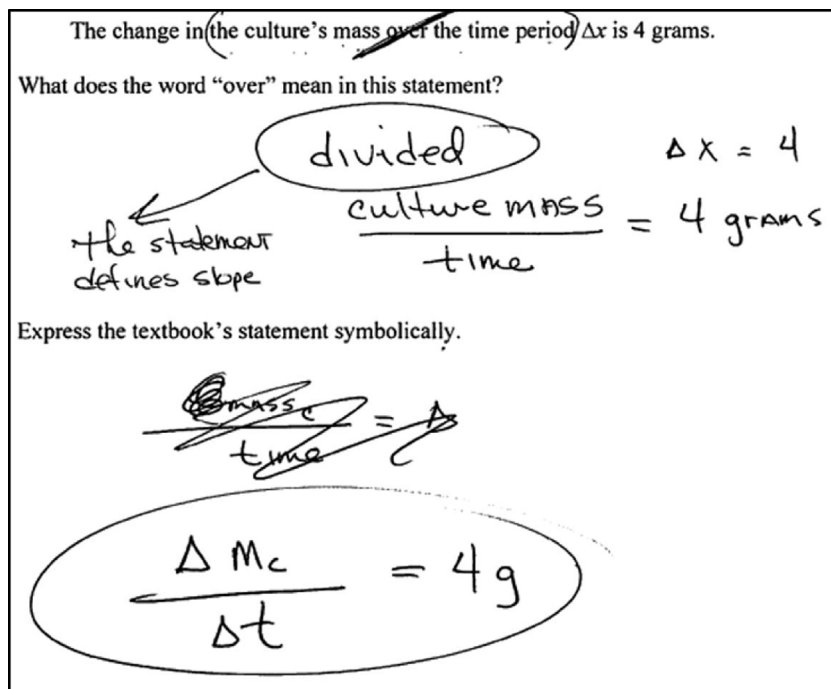 The change in (the culture's mass over the time period) Δx is 4 grams.
What does the word “over” mean in this statement?
divided
Δ x = 4
culture mass
time
= 4 grams
the statement
defines slope
Express the textbook's statement symbolically.
mass c
time
= Δ
Δ Mc
Δt
= 4g